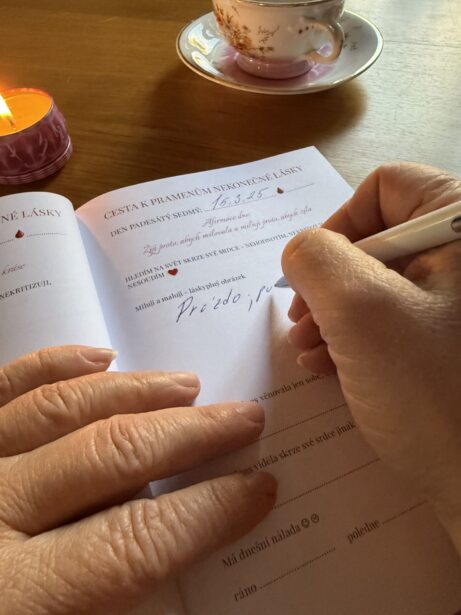 NÉ LÁSKY
krása
NEKRITIZUJI,
CESTA K PRAMENŮM NEKONEČNÉ LÁSKY
DEN PADESÁTÝ SEDMÝ: 15.3.25
Afirmace dne:
Žiji proto, abych milovala a miluji proto, abych žila
HLEDÍM NA SVĚT SKRZE SVÉ SRDCE - NEHODNOTÍM,
NESOUDÍM ❤
Miluji a maluji - láskyplný obrázek
Prázdo, po
věnovala jen sobě,
viděla skrze své srdce jinak
Má dnešní nálada ☺☹
ráno poledne